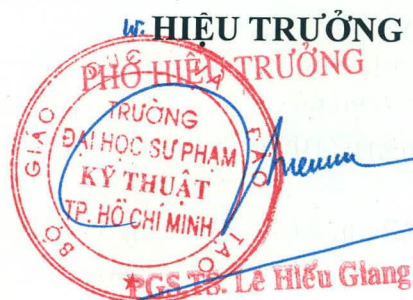 HIỆU TRƯỞNG
PHÓ HIỆU TRƯỞNG
BỘ GIÁO DỤC VÀ ĐÀO TẠO
TRƯỜNG
ĐẠI HỌC SƯ PHẠM
KỸ THUẬT
TP. HỒ CHÍ MINH
PGS.TS. Lê Hiếu Giang